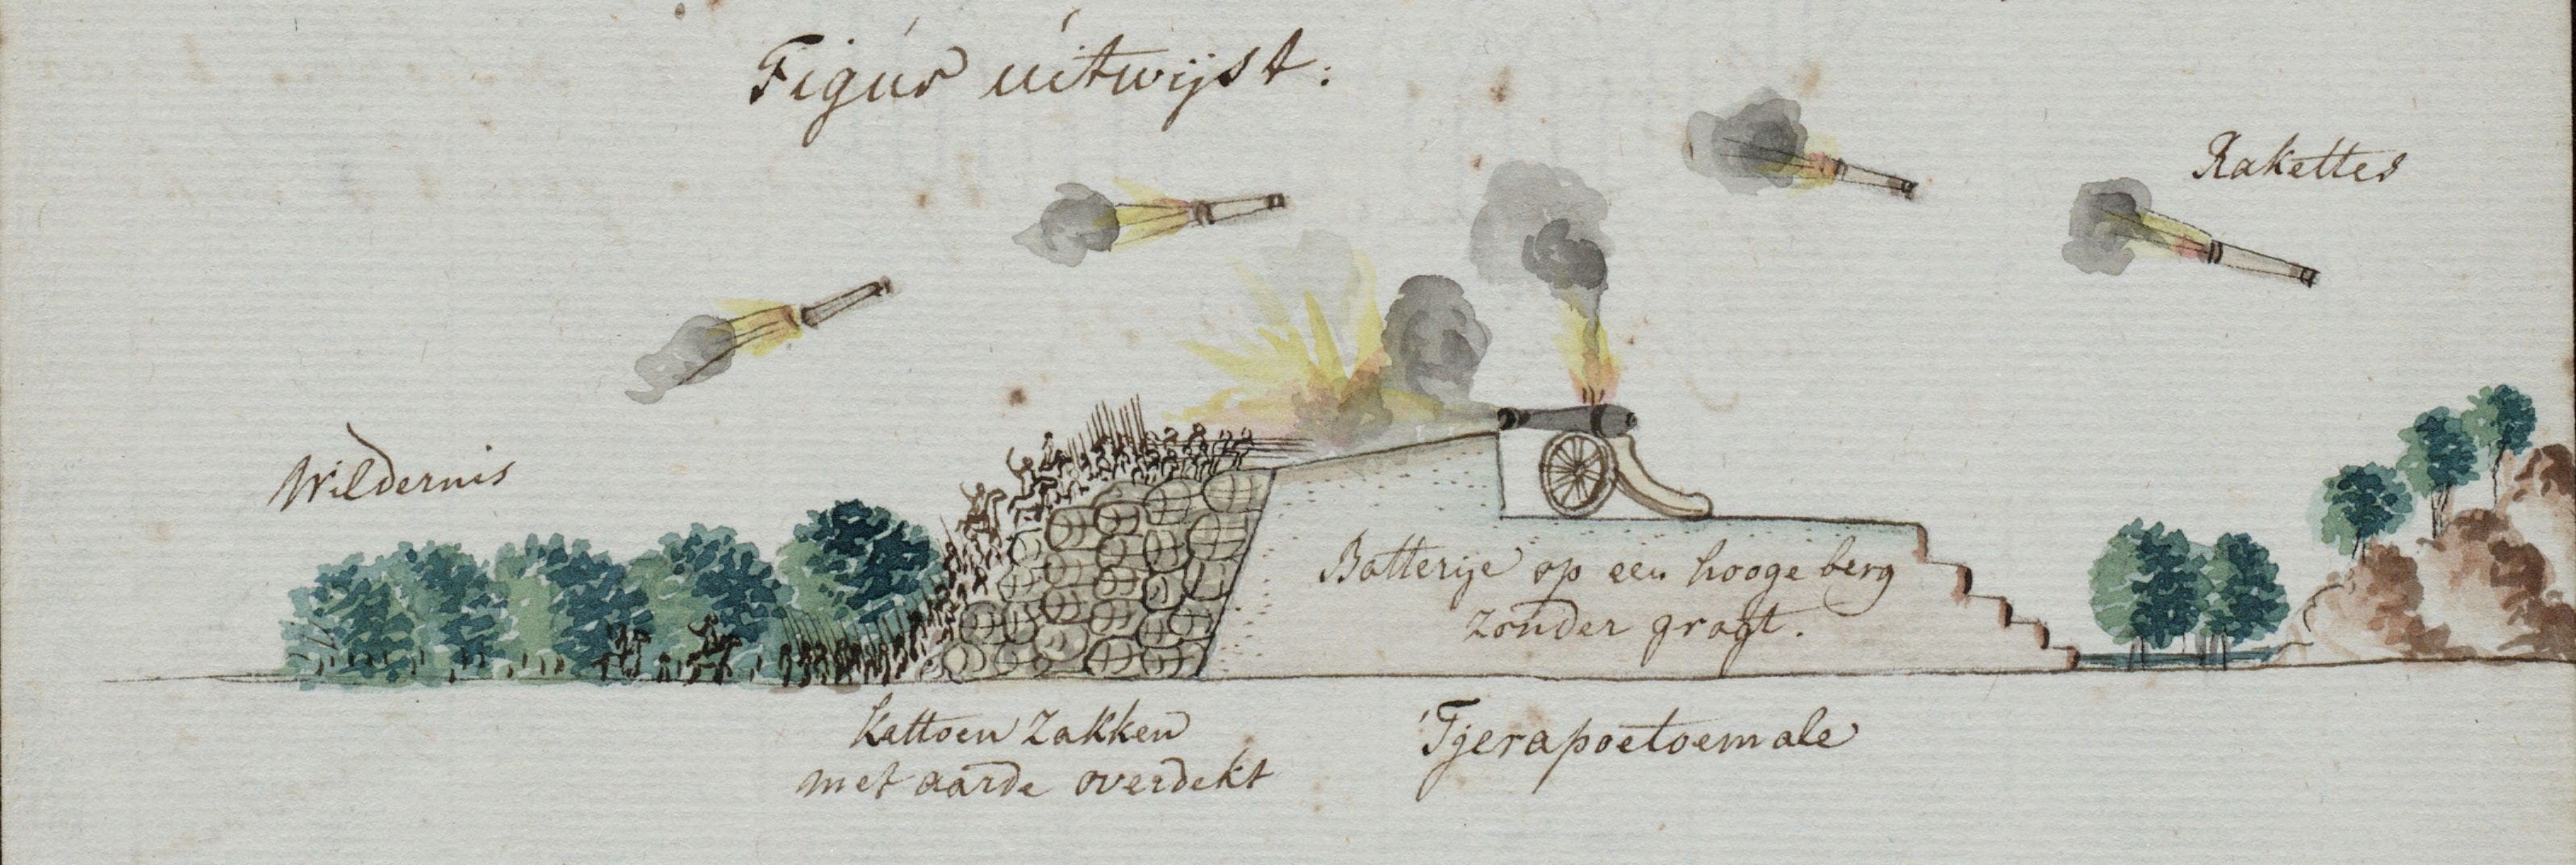 Figúr úitwijst:
Rakettes
Wildernis
Batterije op een hooge berg
zonder gragt.
kattoen Zakken
met aarde overdekt
Tjerapoetoemale